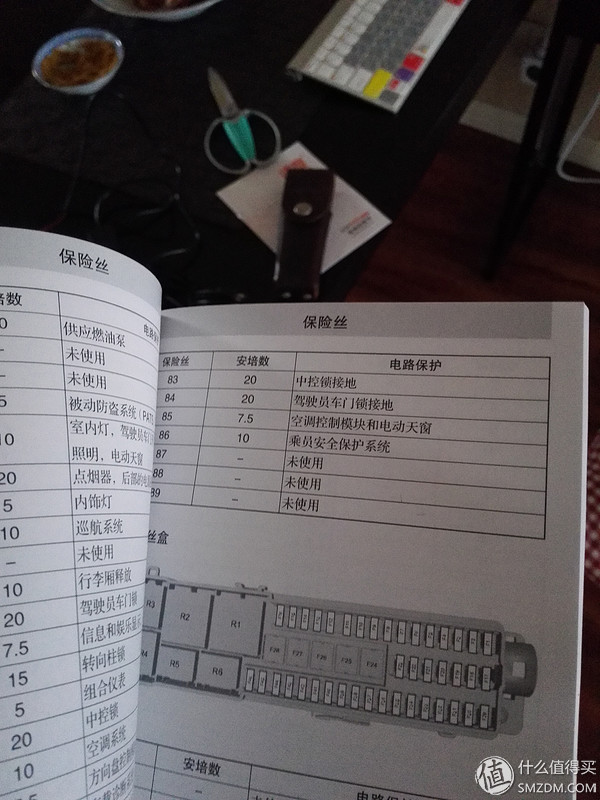 保险丝
安培数
供应燃油泵
未使用
未使用
5 被动防盗系统(PAT
10 室内灯，驾驶员车门
照明，电动天窗
20 点烟器，后部的电
5 内饰灯
10 巡航系统
– 未使用
10 行李厢释放
20 驾驶员车门锁
7.5 信息和娱乐显示
15 转向柱锁
5 组合仪表
20 中控锁
10 空调系统
保险丝
保险丝 安培数 电路保护
83 20 中控锁接地
84 20 驾驶员车门锁接地
85 7.5 空调控制模块和电动天窗
86 10 乘员安全保护系统
87 – 未使用
88 – 未使用
89 – 未使用
丝盒
R3 R2 R1
R4 R5 R6
F28 F27 F26 F25 F24
安培数 电路保护
值 什么值得买
SMZDM.COM